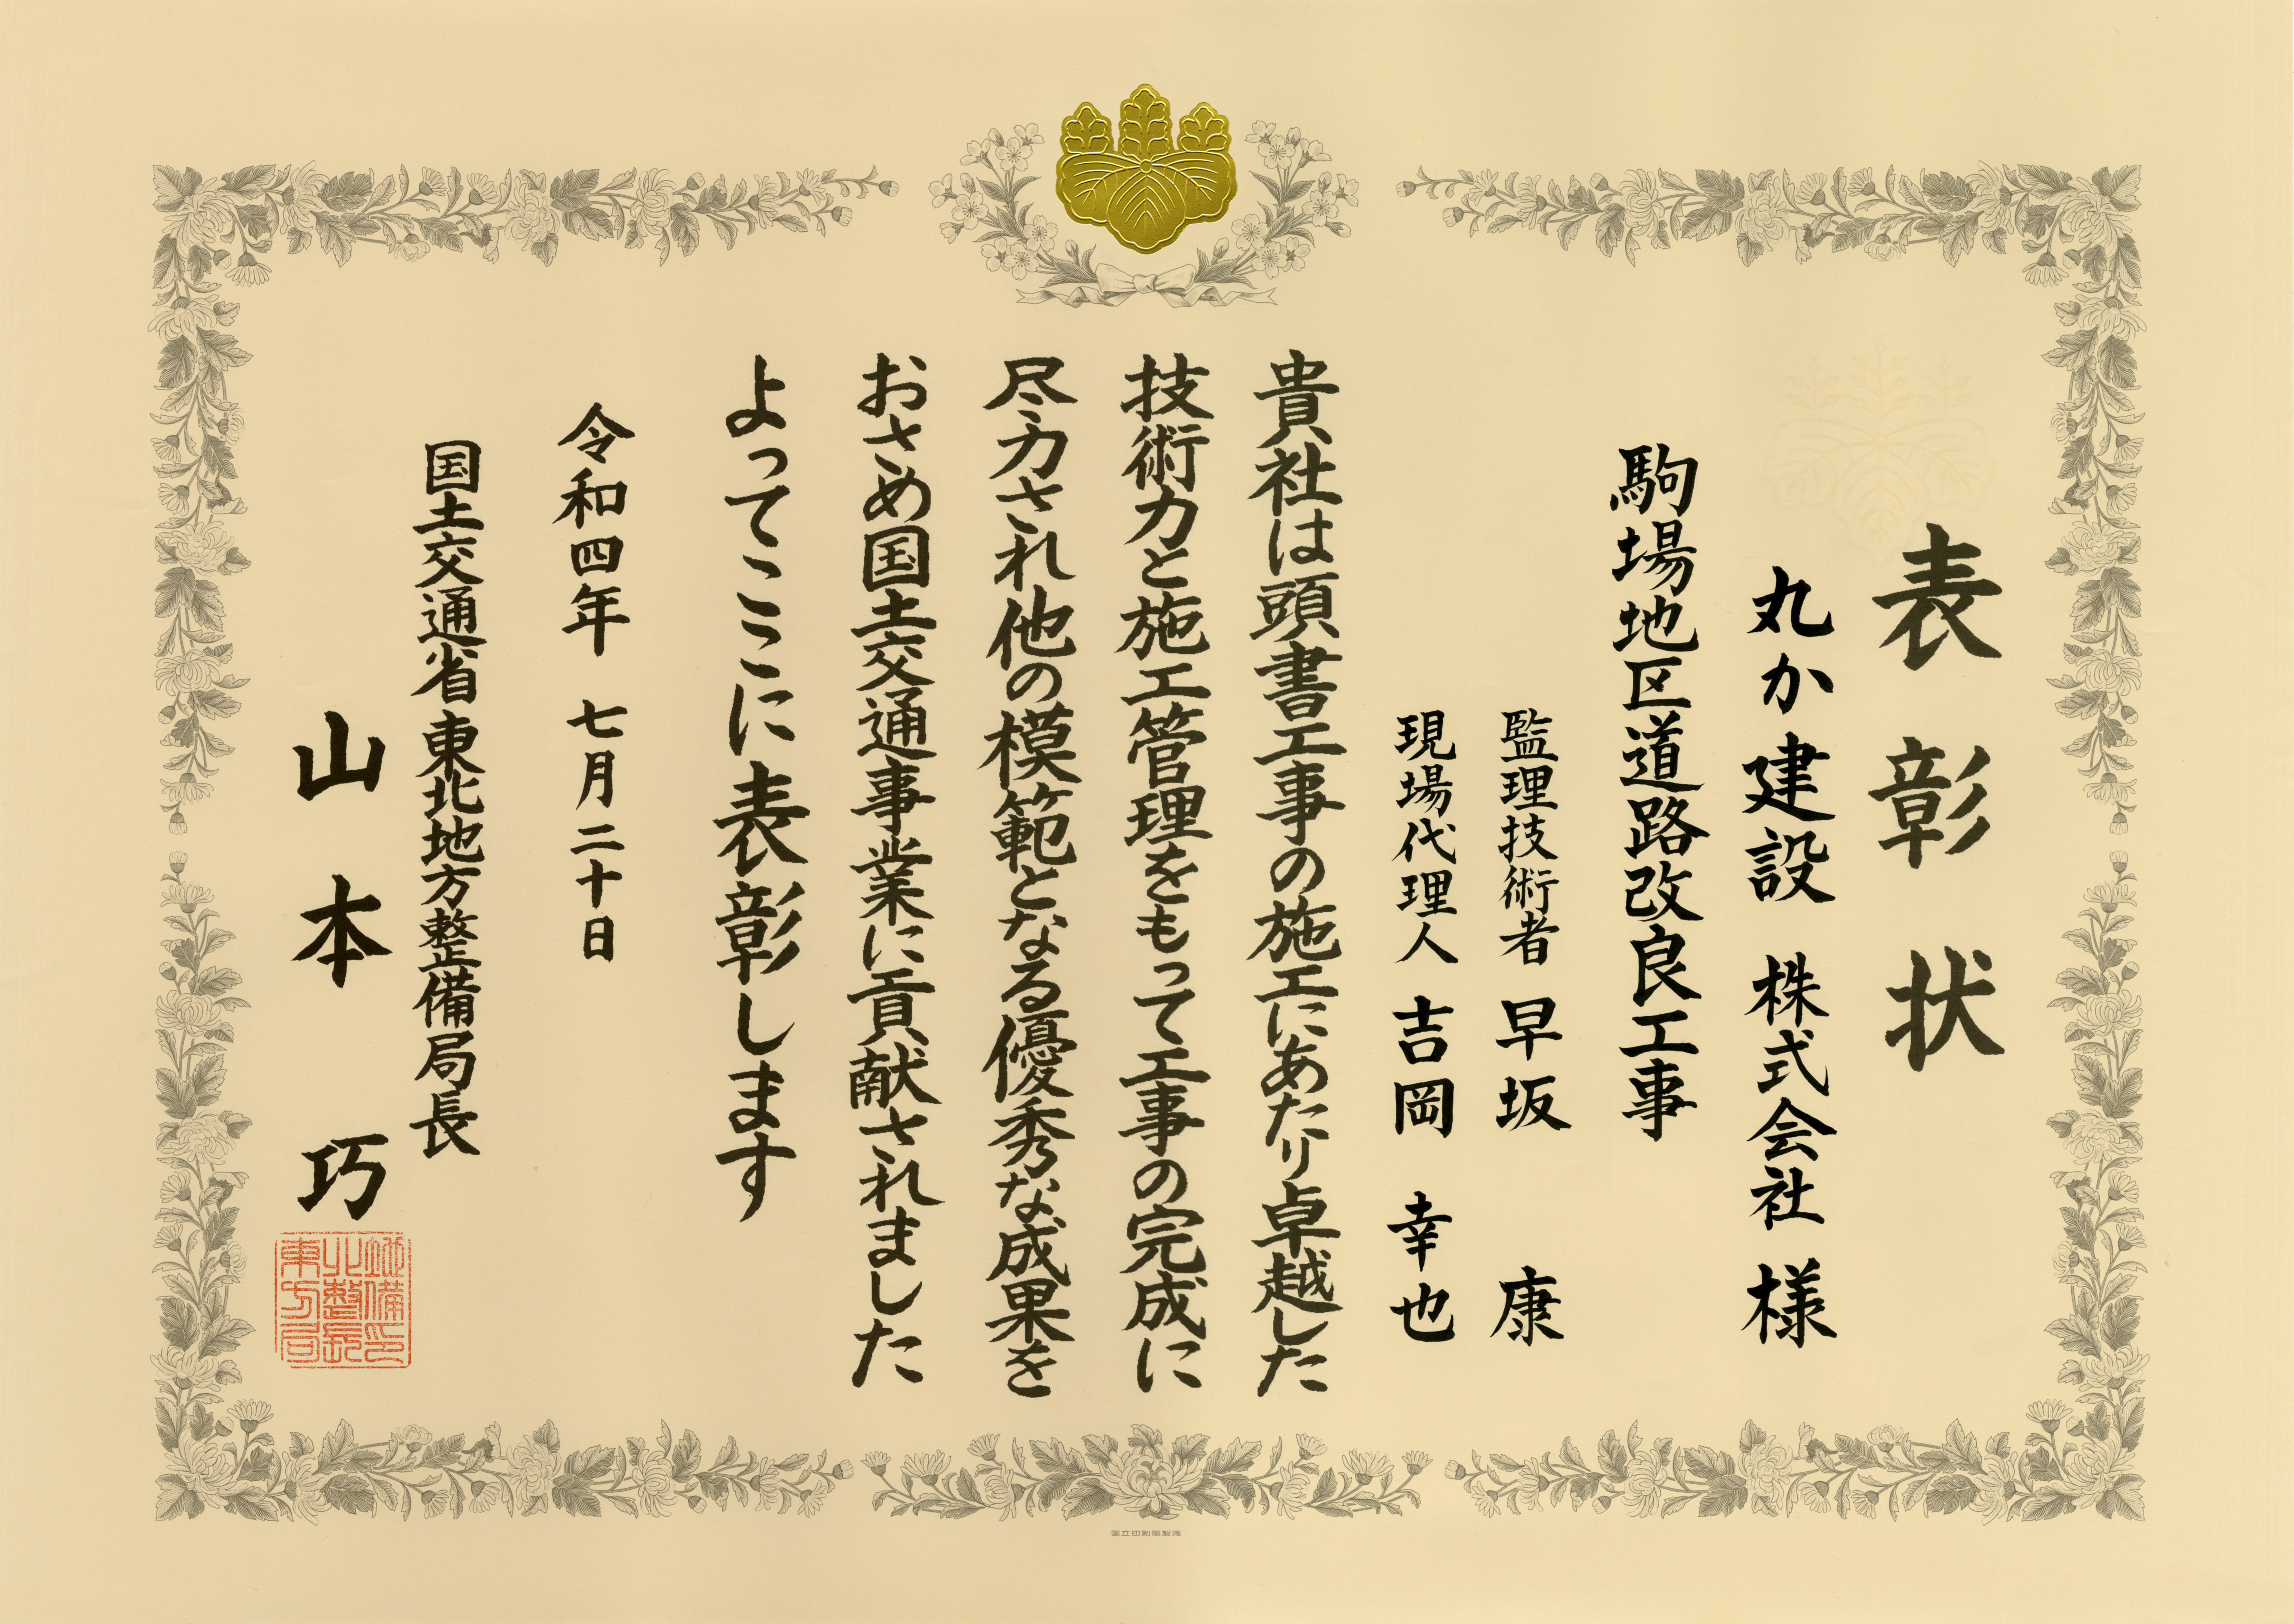 表彰状
丸か建設 株式会社 様
駒場地区道路改良工事
監理技術者 早坂 康
現場代理人 吉岡 幸也
貴社は頭書工事の施工にあたり卓越した
技術力と施工管理をもって工事の完成に
尽力され他の模範となる優秀な成果を
おさめ国土交通事業に貢献されました
よってここに表彰します
令和四年 七月二十日
国土交通省東北地方整備局長
山本 巧
東北地方整備局長印
国立印刷局製造